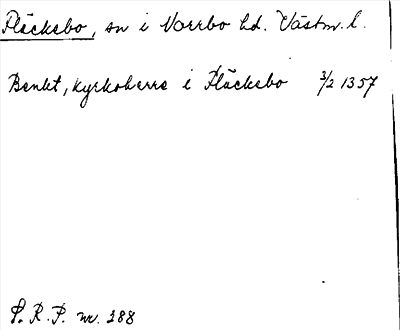 Fläcksbo, sn i Norrbo hd. Västm. l.
Benkt, kyrkoherre i Fläcksbo 3/2 1357
S. R. P. nr. 388